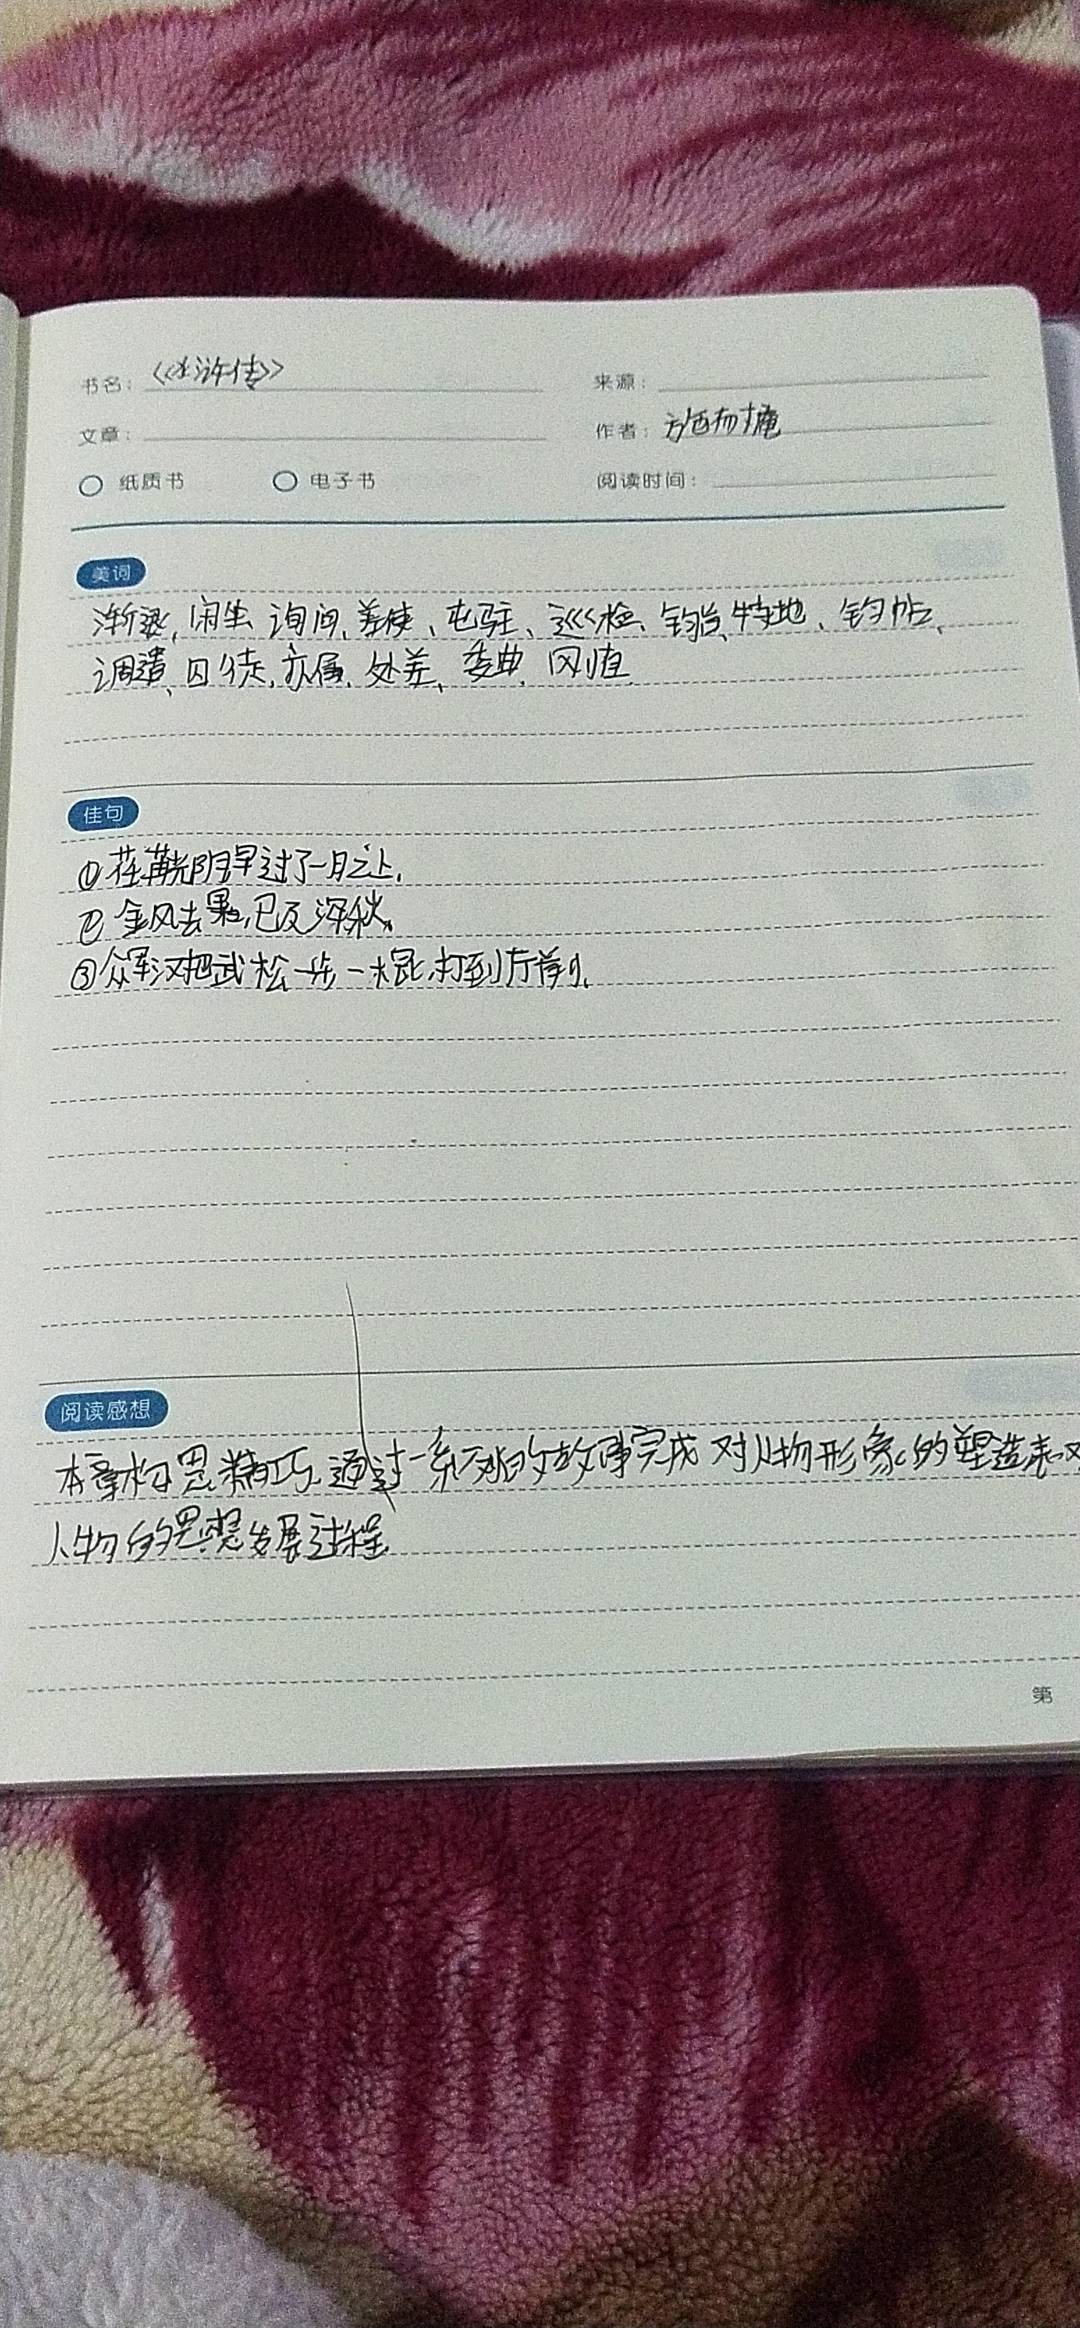 书名： 《水浒传》 来源：
文章： 作者： 施耐庵
纸质书 电子书 阅读时间：
美词
渐退、闲坐、询问、差使、屯驻、巡检、钧旨、特地、钧帖、
调遣、囚徒、亦属、处差、委典、刚直
佳句
①荏苒光阴早过了一月之上。
② 金风去暑，已及深秋。
③众军汉把武松一步一棍，打到厅前。
阅读感想
本章构思精巧，通过一系列的故事完成对人物形象的塑造表
人物的思想发展过程
第